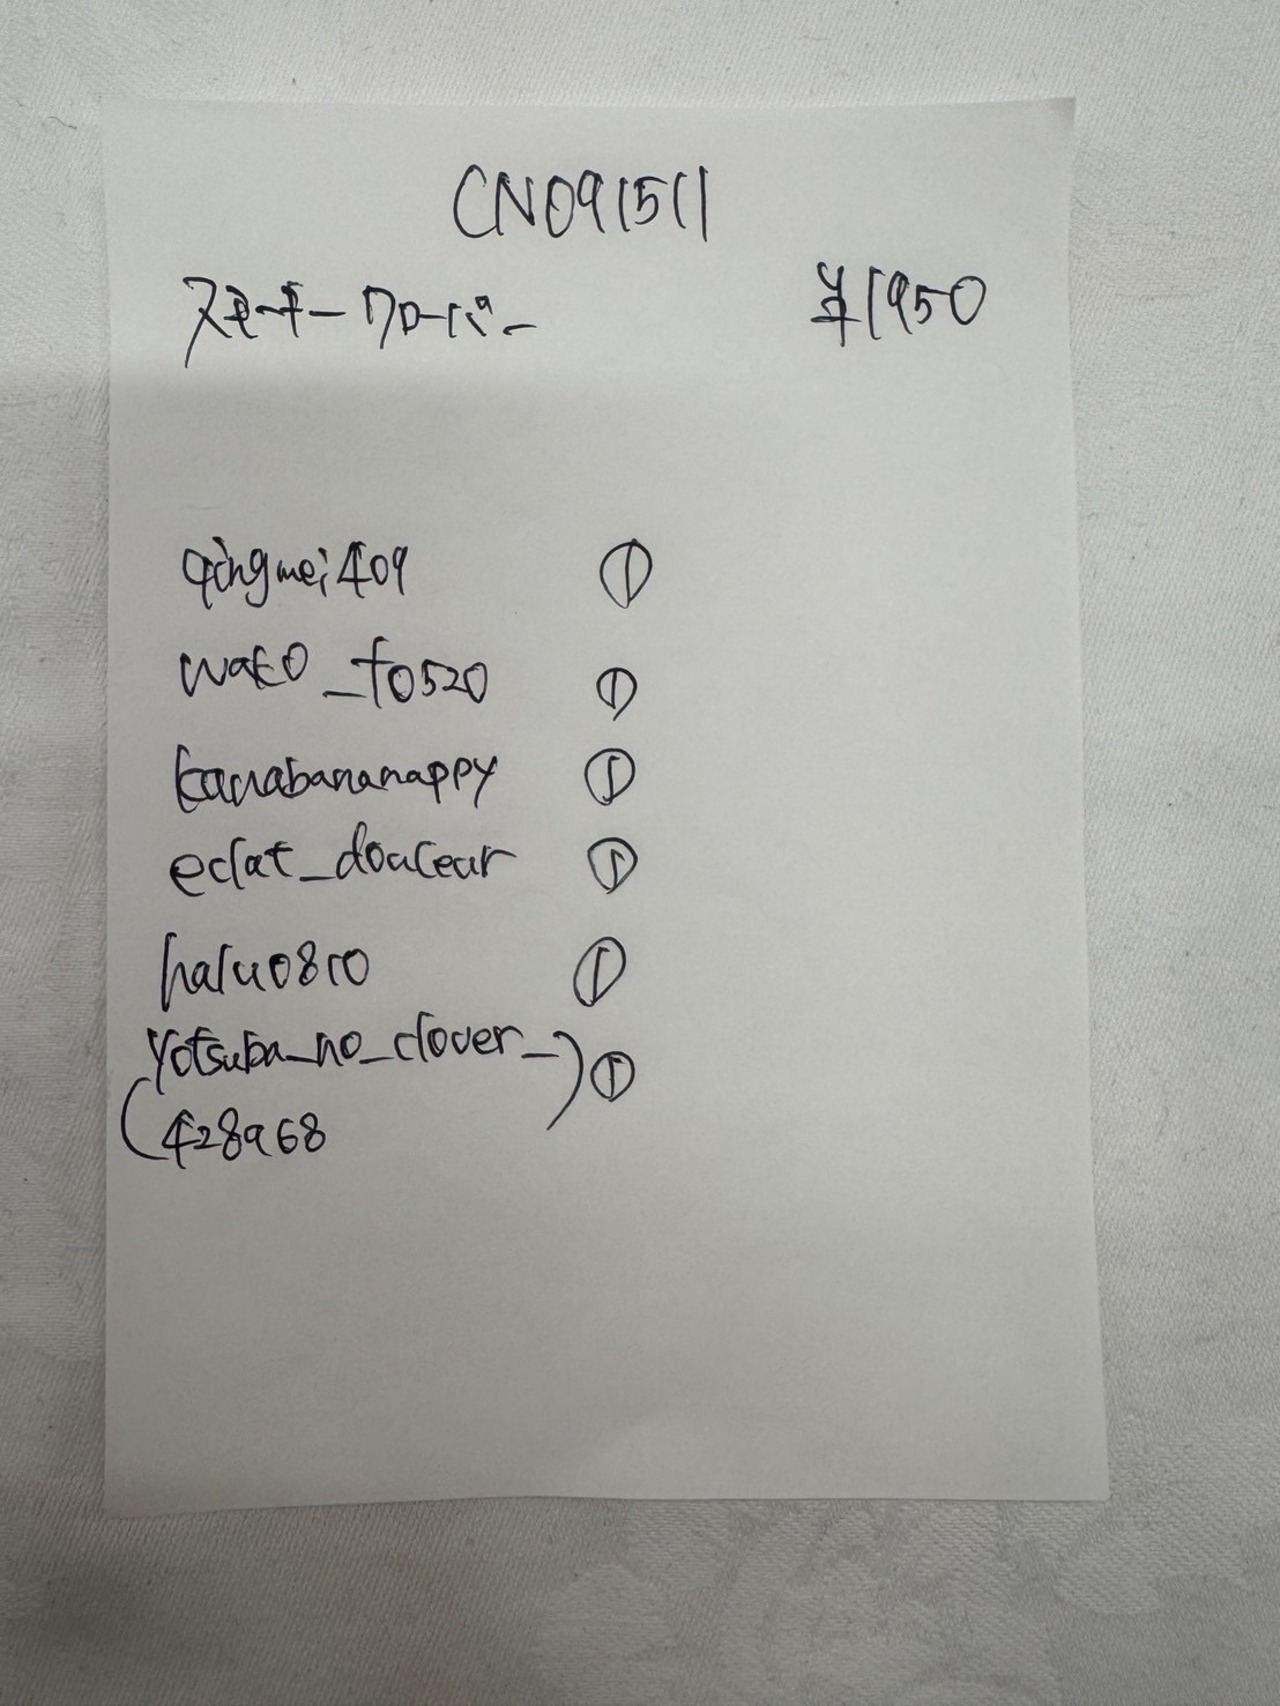 CN091511
スモーキークローバー ¥1950
qingmei409 ①
wato_to520 ①
kanabananappy ①
eclat_douceur ①
halu0810 ①
yotsuba_no_clover_ ①
(428968)